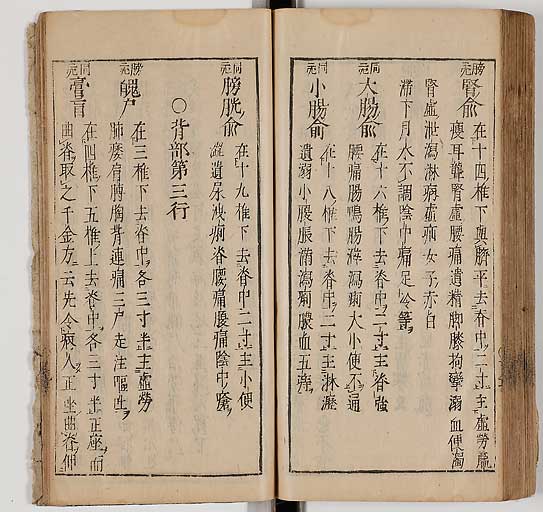 腎俞 在十四椎下與臍平去脊中二寸主虛勞羸
瘦耳聾腎虛腰痛遺精脚膝拘攣溺血便濁
腎虛泄瀉淋病虛病女子赤白
滯下月水不調陰中痛足冷等
大腸俞 在十六椎下去脊中二寸主脊強
腰痛腸鳴腸澼瀉痢大小便不通
小腸俞 在十八椎下去脊中二寸主淋瀝
遺溺小腹脹満瀉痢膿血五痔
膀胱俞 在十九椎下去脊中二寸主小便
澁遺尿洩痢脊腰痛腹痛陰中瘡
○背部第三行
魄户 在三椎下去脊中各三寸半主虛勞
肺痿肩膊胸背連痛三尸走注嘔吐
膏肓 在四椎下五椎上去脊中各三寸半正座而
曲脊取之千金方云先令病人正坐曲脊伸